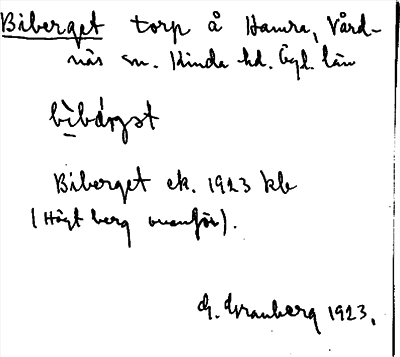 Biberget torp å Hamra, Vård-
näs sn. Kinda hd. Ögl. län
bìbárgət
Biberget ek. 1923 kb
(Högt berg ovanför).
G. Granberg 1923.